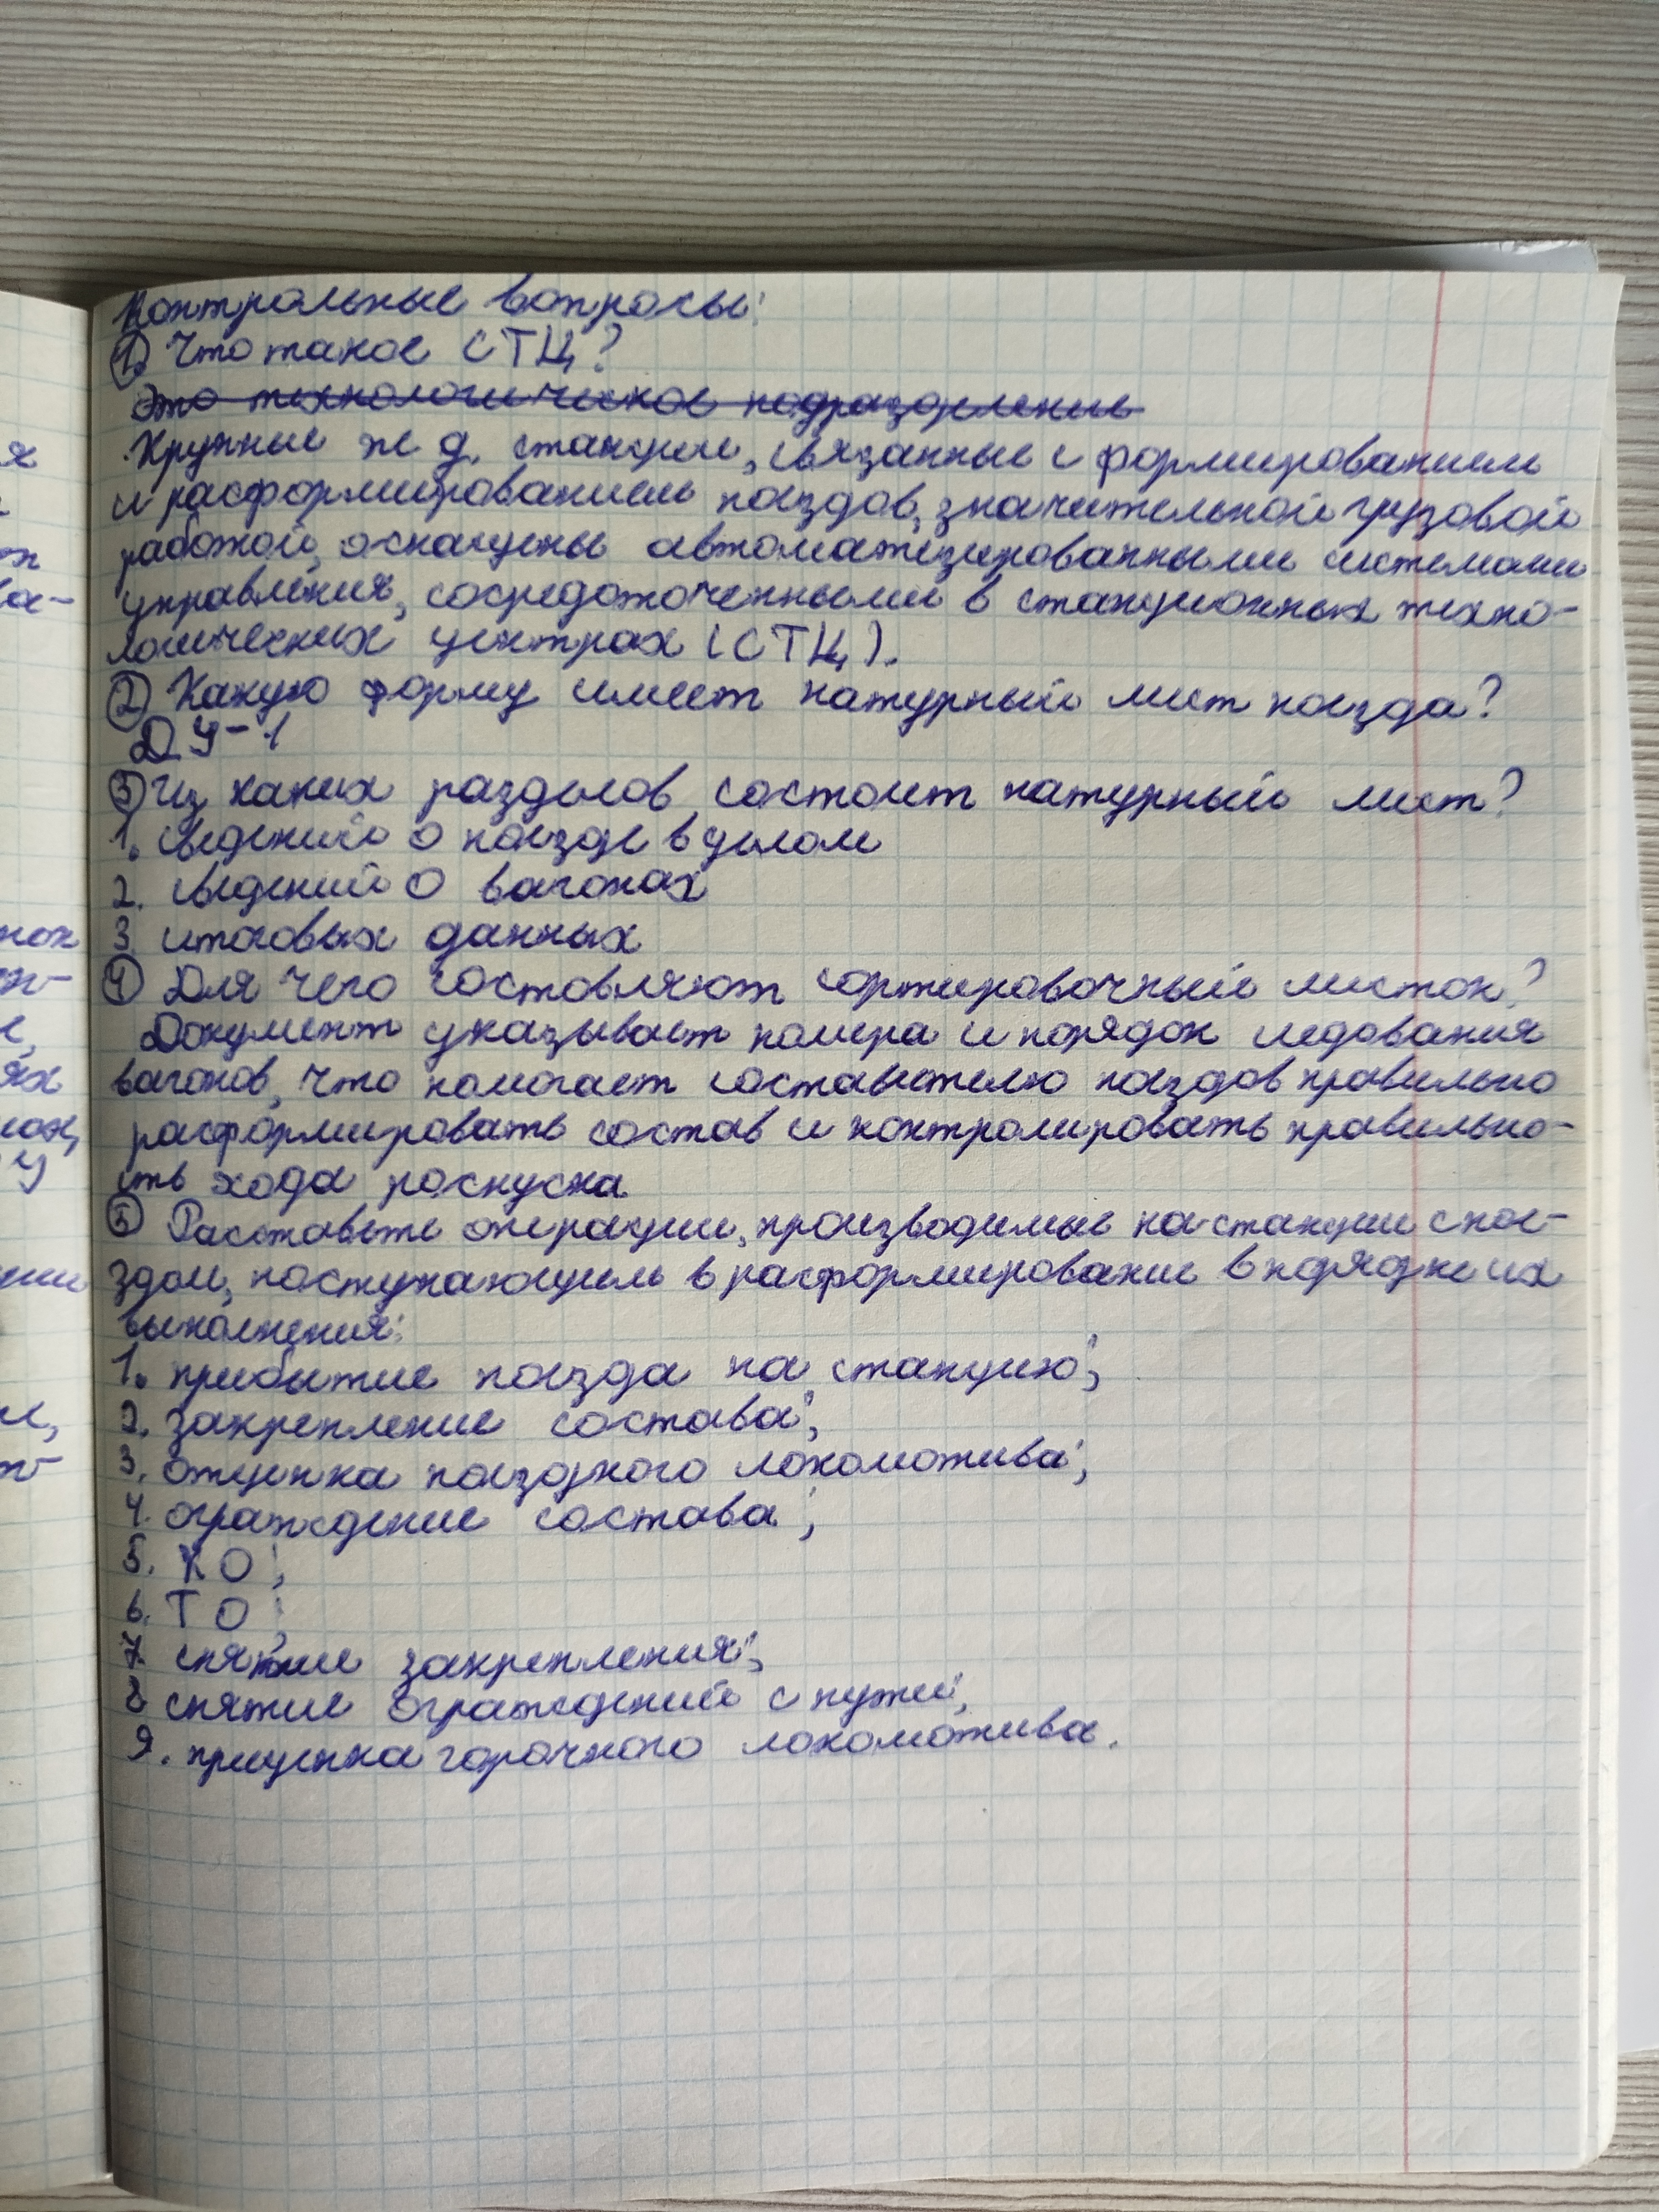 Контрольные вопросы:
1. Что такое СТЦ?
Это технологическое подразделение
Крупные ж д. станции, связанные с формированием
и расформированием поездов, значительной грузовой
работой, оснащены автоматизированными системами
управления, сосредоточенными в станционных техно-
логических центрах (СТЦ).
2 Какую форму имеет натурный лист поезда?
ДУ-1
3 Из каких разделов состоит натурный лист?
1. сведений о поезде в целом
2. сведений о вагонах
3 итоговых данных
4 Для чего составляют сортировочный листок?
Документ указывает номера и порядок следования
вагонов, что помогает составителю поездов правильно
расформировать состав и контролировать правильно-
сть хода роспуска
5 Расставьте операции, производимые на станции с пое-
здом, поступающим в расформирование в порядке их
выполнения:
1. прибытие поезда на станцию;
2. закрепление состава;
3. отцепка поездного локомотива;
4. ограждение состава;
5. КО;
6. ТО;
7. снятие закрепления;
8 снятие ограждений с пути;
9. прицепка горочного локомотива.
я
ва-
е,
ях
у